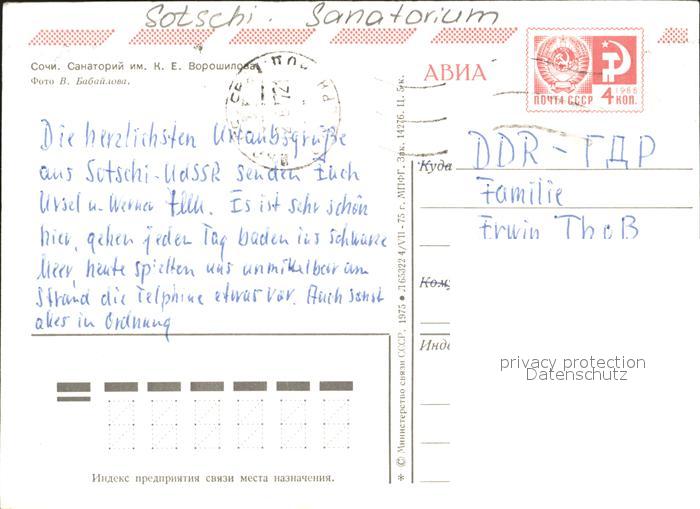 Sotschi. Sanatorium
Сочи. Санаторий им. К. Е. Ворошилова
Фото В. Бабайлова.
АВИА
1966
ПОЧТА СССР 4 КОП.
Die herzlichsten Urlaubsgrüße
aus Sotschi-UdSSR senden Euch
Ursel u. Werner. Es ist sehr schön
hier, gehen jeden Tag baden ins schwarze
Meer, heute spielten uns unmittelbar am
Strand die Telphine etwas vor. Auch sonst
alles in Ordnung
Куда
DDR - ГДР
Familie
Erwin Thoß
Кому
Инде
privacy protection
Datenschutz
Индекс предприятия связи места назначения.
* © Министерство связи СССР, 1975 • Л 65322 4/VII-75 г. МПФГ. Зак. 14276. Ц. 5 к.